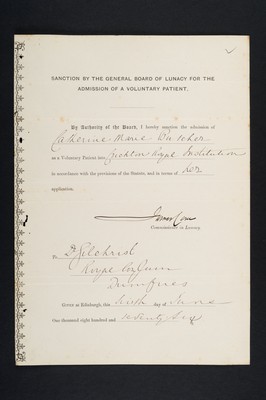 SANCTION BY THE GENERAL BOARD OF LUNACY FOR THE
ADMISSION OF A VOLUNTARY PATIENT.
By Authority of the Board, I hereby sanction the admission of
Catherine Marie
as a Voluntary Patient into Crichton Royal Institution
in accordance with the provisions of the Statute, and in terms of her
application.
Commissioner in Lunacy.
To Dr Gilchrist
Royal Asylum
Dumfries
Given at Edinburgh, this sixth day of June
One thousand eight hundred and seventy six